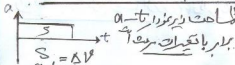 a
مساحت زیر نمودار a-t
S
t
برابر با تغییرات سرعت
S = ΔV